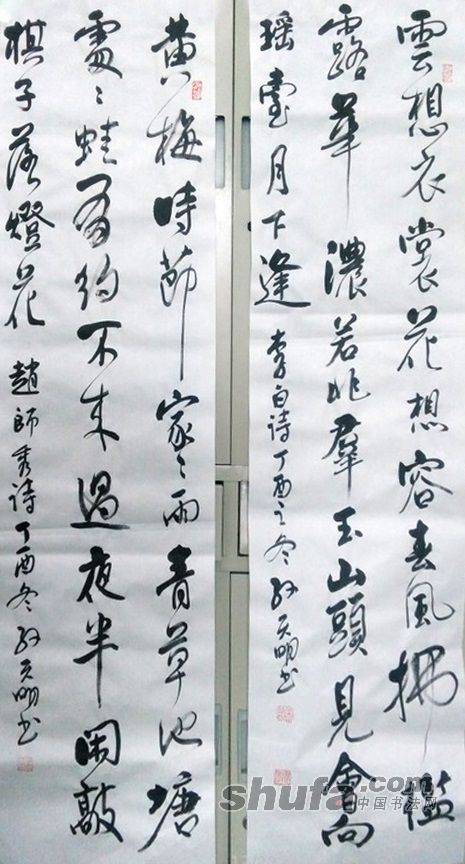 雲想衣裳花想容春風拂檻
露華濃若非羣玉山頭見會向
瑶臺月下逢 李白诗丁酉之冬孙天明书
黄梅時節家々雨青草池塘
處々蛙有約不来過夜半閑敲
棋子落燈花 趙師秀诗丁酉冬孙天明书
shufa.com
中国书法网